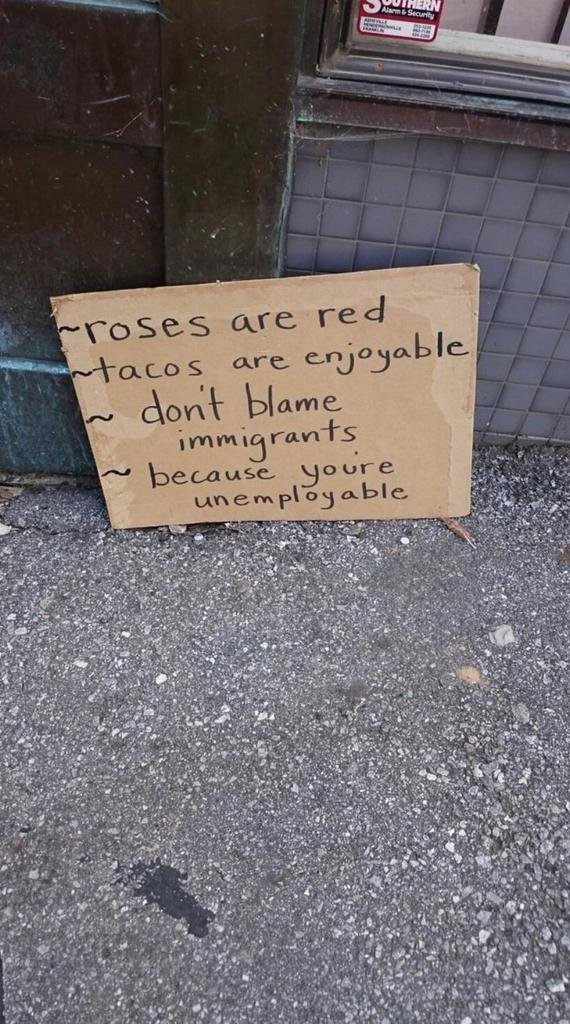 SOUTHERN
Alarm & Security
ASHEVILLE
HENDERSONVILLE
FRANKLIN
~roses are red
~tacos are enjoyable
~ don't blame
immigrants
~ because you're
unemployable